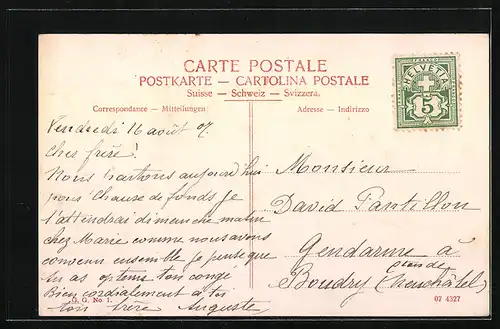 CARTE POSTALE
POSTKARTE — CARTOLINA POSTALE
Suisse — Schweiz — Svizzera.
Correspondance — Mitteilungen:
Adresse — Indirizzo
FRANCO
HELVETIA
5
Vendredi 16 août 07.
Cher frère!
Nous partons aujourd'hui
pour Chause de fonds Je
t'attendrai dimanche matin
chez Marie comme nous avons
convenu ensemble je pense que
tu as optenu ton congé
Bien cordialement à toi
ton frère Auguste
Monsieur
David Pantillon
Gendarme à
Boudry (Neuchâtel)
G. G. No. 1.
07 4327